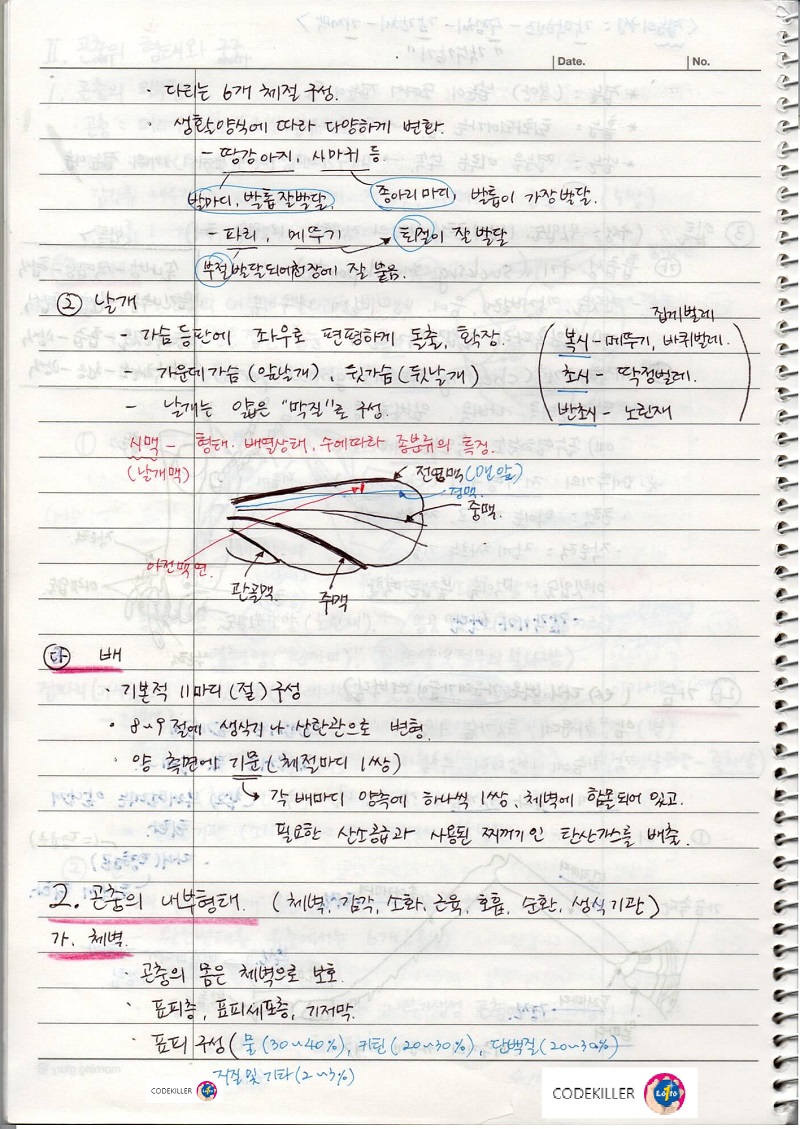 Date.
No.
· 다리는 6개 체절 구성.
· 생활양식에 따라 다양하게 변화.
- 땅강아지, 사마귀 등
발마디, 발톱 잘발달.
종아리마디, 발톱이 가장발달.
- 파리, 메뚜기. 퇴절이 잘 발달
부절 발달되어 천장에 잘 붙음.
② 날개
- 가슴 등판에 좌우로 편평하게 돌출, 확장.
- 가운데가슴 (앞날개), 뒷가슴 (뒷날개)
- 날개는 얇은 "막질"로 구성.
집게벌레
복시 - 메뚜기, 바퀴벌레.
초시 - 딱정벌레.
반초시 - 노린재
시맥 - 형태. 배열상태. 수에따라 종분류의 특징.
(날개맥)
전연맥 (맨 앞)
경맥.
중맥.
아전맥면.
관골맥.
주맥
다 배
· 기본적 11마디 (절) 구성
· 8~9 절에 생식기나 산란관으로 변형.
· 양 측면에 기문 (체절마디 1쌍)
각 배마디 양측에 하나씩 1쌍, 체벽에 함몰되어 있고.
필요한 산소공급과 사용된 찌꺼기인 탄산가스를 배출.
2. 곤충의 내부형태. (체벽, 감각, 소화, 근육, 호흡, 순환, 생식기관)
가. 체벽.
· 곤충의 몸은 체벽으로 보호.
· 표피층, 표피세포층, 기저막.
· 표피 구성 (물 (30~40%), 키틴 (20~30%), 단백질 (20~30%)
지질 및 기타 (2~3%)
CODEKILLER Lo1to
CODEKILLER Lo1to